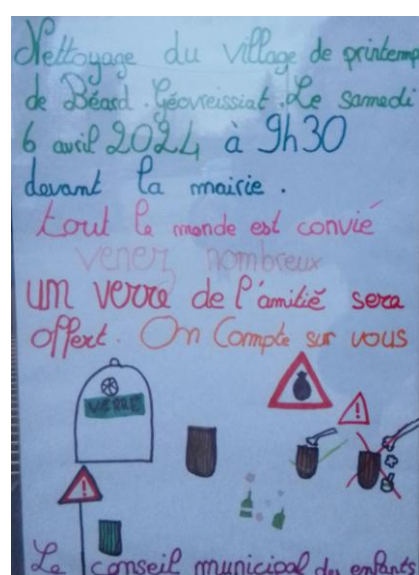 Nettoyage du village de printemp
de Béard. Géovreissiat. Le samedi
6 avril 2024 à 9h30
devant la mairie.
tout le monde est convié
venez nombreux
un verre de l'amitié sera
offert. On Compte sur vous
VERRE
!
!
Le conseil municipal des enfants